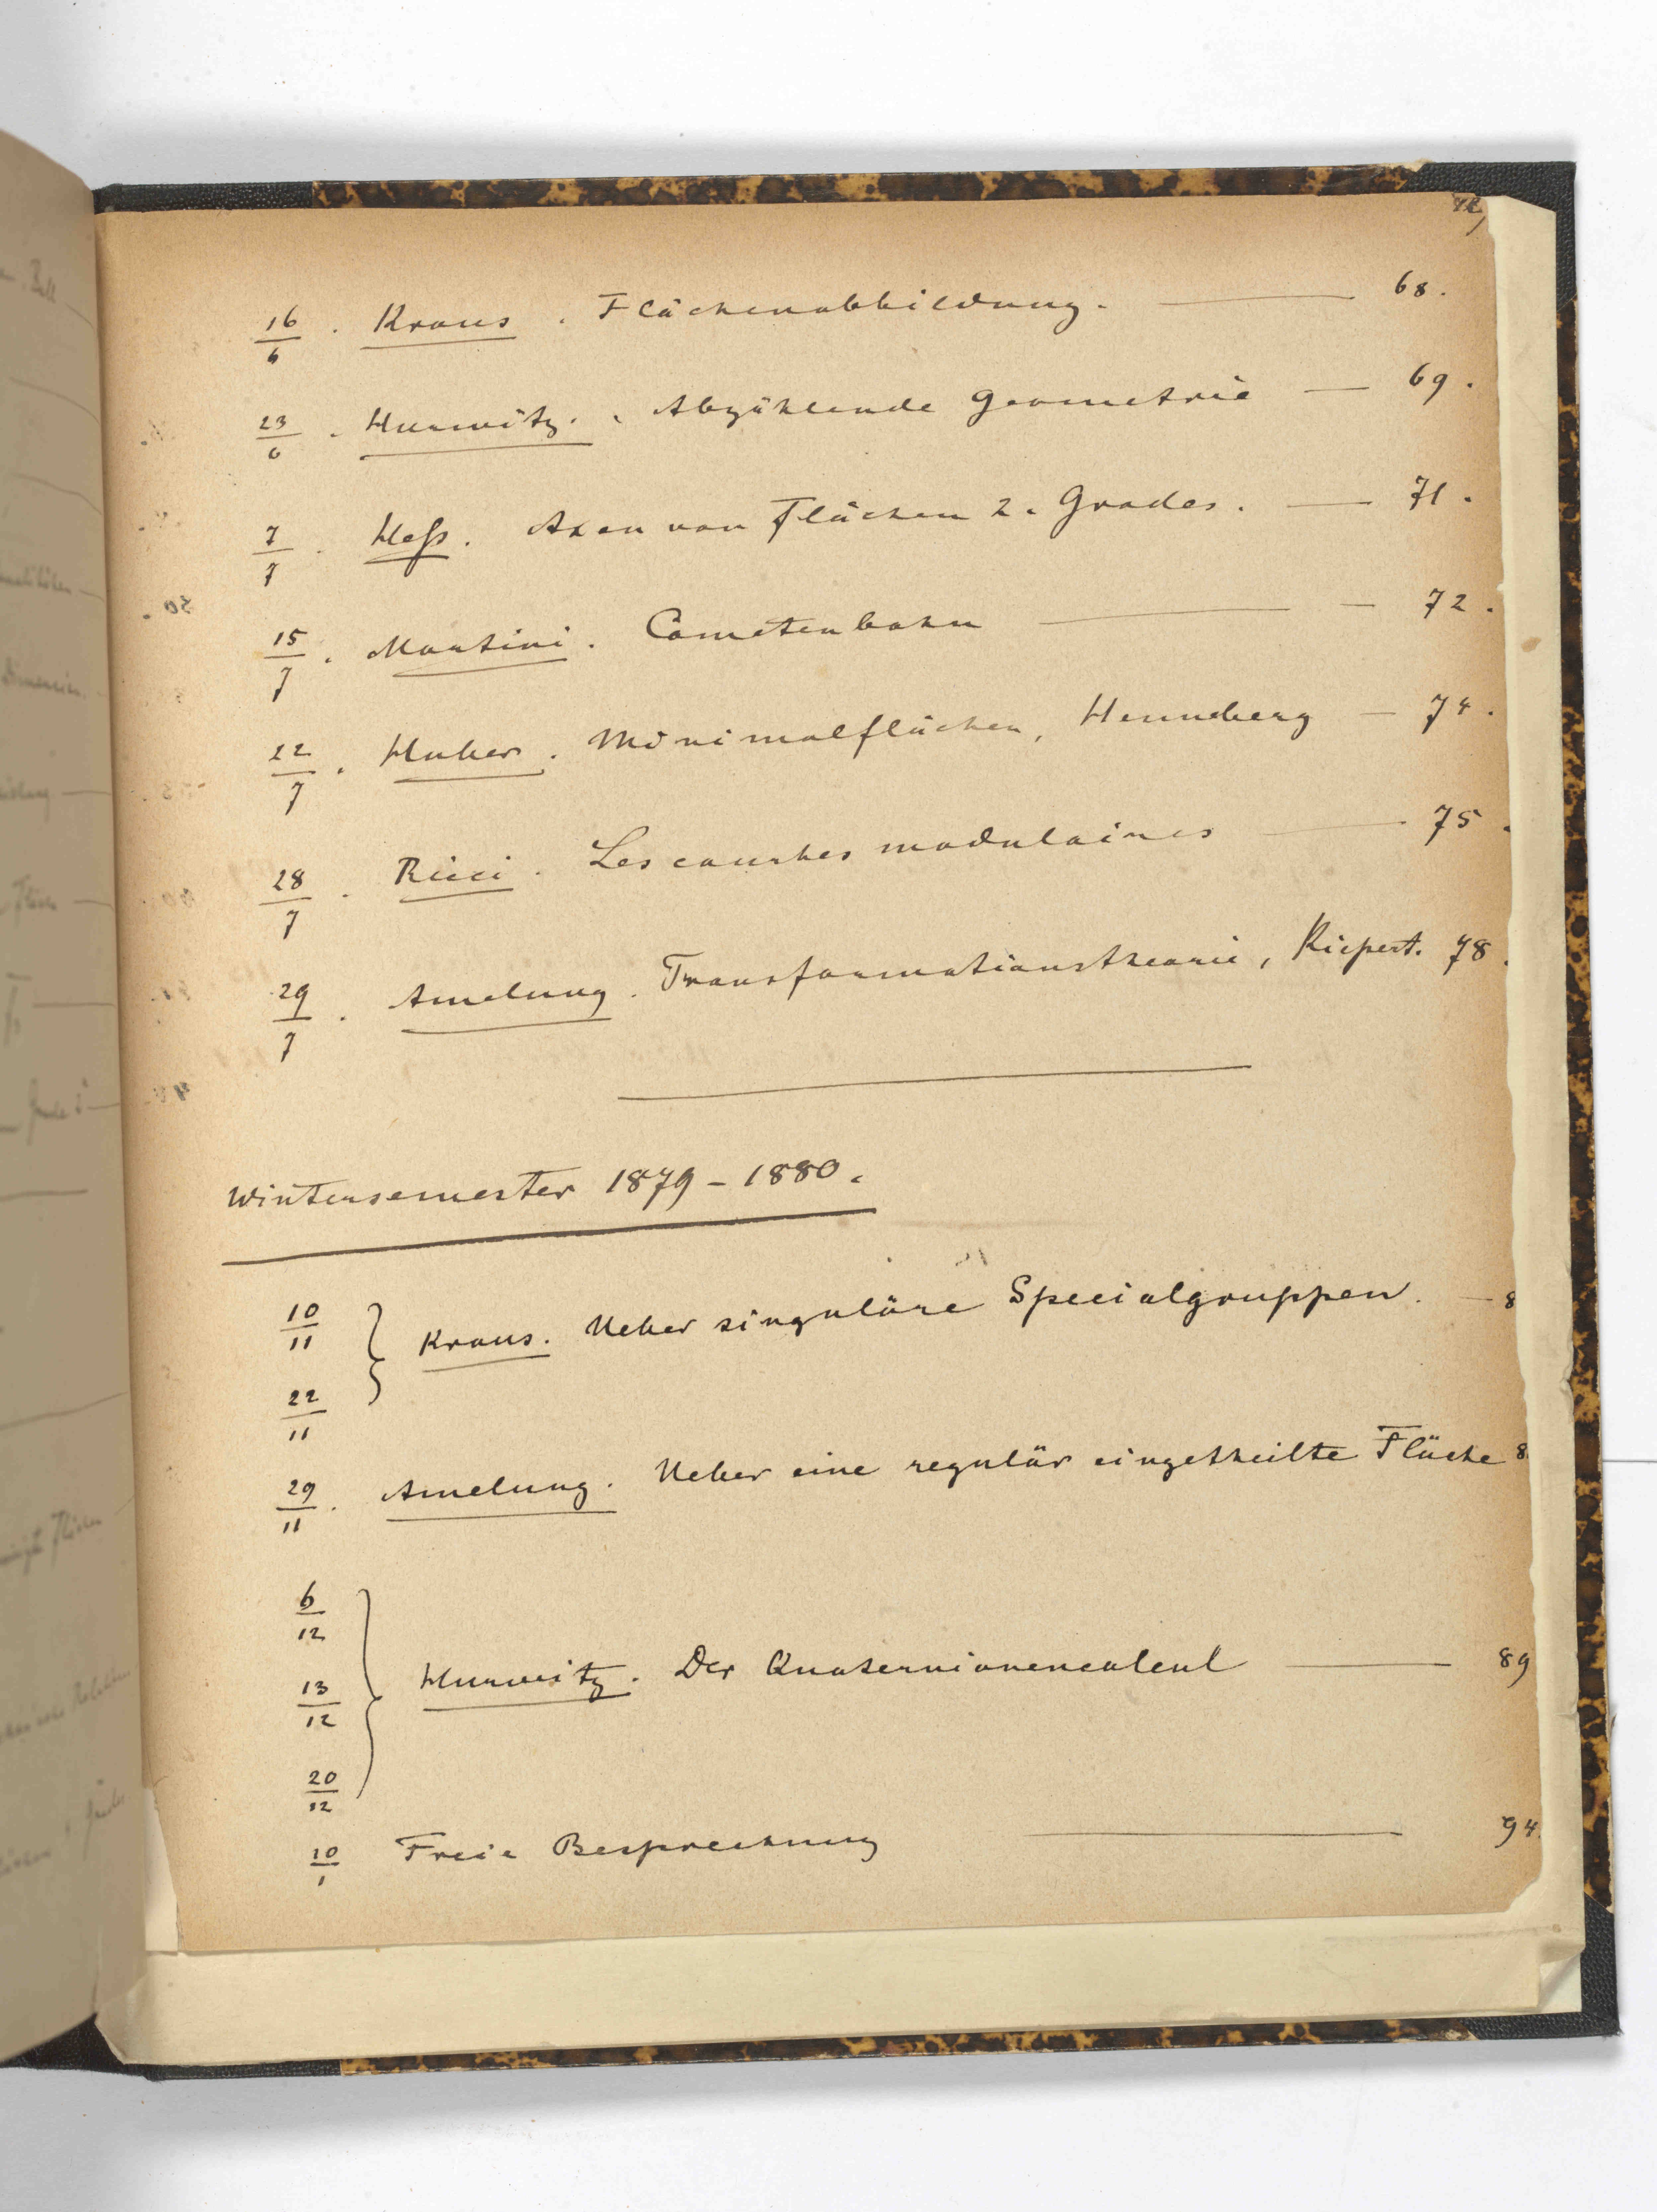 16/6 . Kraus . Flächenabbildung. — 68.
23/6 . Hurwitz. . Abzählende Geometrie — 69.
7/7 . Heß. Axen von Flächen 2. Grades. — 71.
15/7 . Martini. Cometenbahn — 72.
22/7 . Huber. Minimalflächen, Henneberg — 74.
28/7 . Ricci. Les courbes modulaires — 75.
29/7 . Amelung. Transformationstheorie, Kiepert. 78.
Wintersemester 1879–1880.
10/11
22/11 } Kraus. Ueber singuläre Specialgruppen. — 8
29/11 . Amelung. Ueber eine regulär eingetheilte Fläche 8
6/12
13/12 } Hurwitz. Der Quaternionencalcul — 89
20/12
10/1 Freie Besprechung — 94.